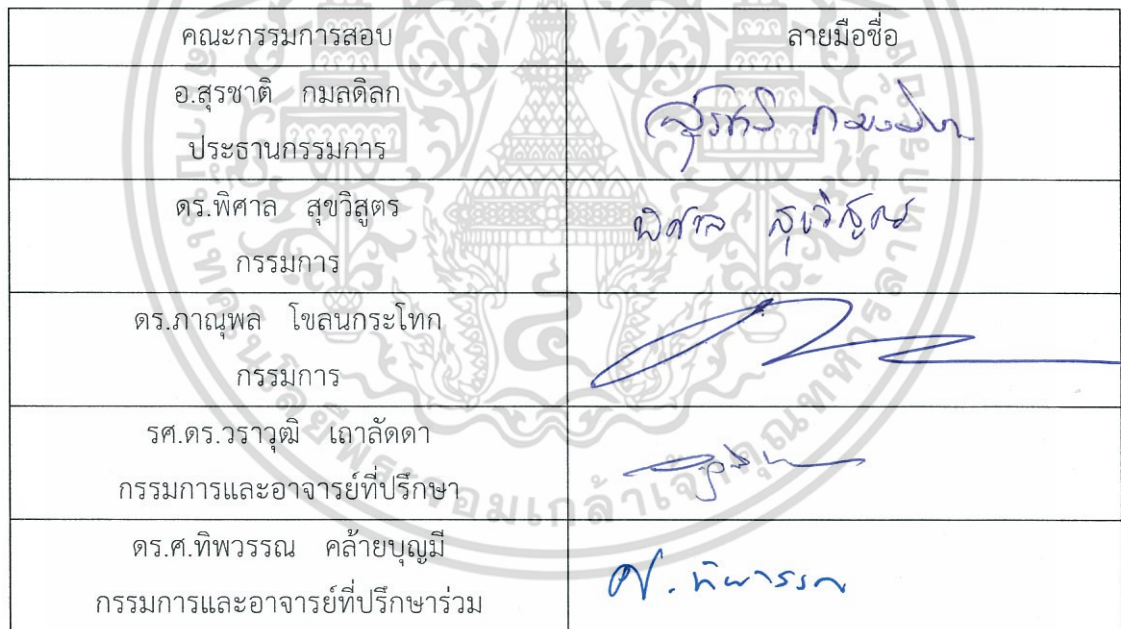 คณะกรรมการสอบ ลายมือชื่อ
อ.สุรชาติ กมลดิลก
ประธานกรรมการ
สุรชาติ กมลดิลก
ดร.พิศาล สุขวิสูตร
กรรมการ
พิศาล สุขวิสูตร
ดร.ภาณุพล โขลนกระโทก
กรรมการ
รศ.ดร.วราวุฒิ เถาลัดดา
กรรมการและอาจารย์ที่ปรึกษา
ดร.ศ.ทิพวรรณ คล้ายบุญมี
กรรมการและอาจารย์ที่ปรึกษาร่วม
ศ. ทิพวรรณ